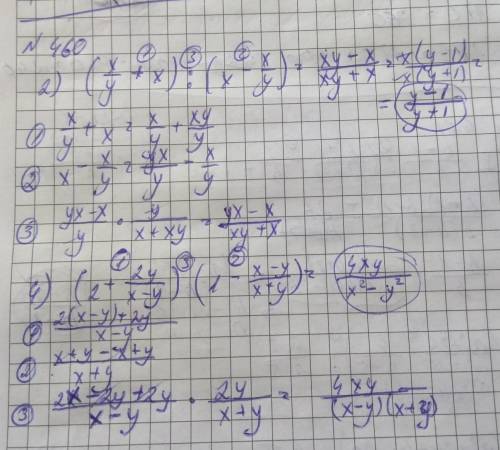 N 460
2) (x/y + x) : (x - x/y) = (xy - x)/(xy + x) = x(y-1)/x(y+1) =
= (y-1)/(y+1)
① x/y + x = x/y + xy/y
② x - x/y = yx/y - x/y
③ (yx-x)/y · y/(x+xy) = (yx-x)/(xy+x)
4) (2 + 2y/(x-y)) (1 - (x-y)/(x+y)) = 4xy/(x² - y²)
① (2(x-y)+2y)/(x-y)
② (x+y-x+y)/(x+y)
③ (2x-2y+2y)/(x-y) · 2y/(x+y) = 4xy/((x-y)(x+y))